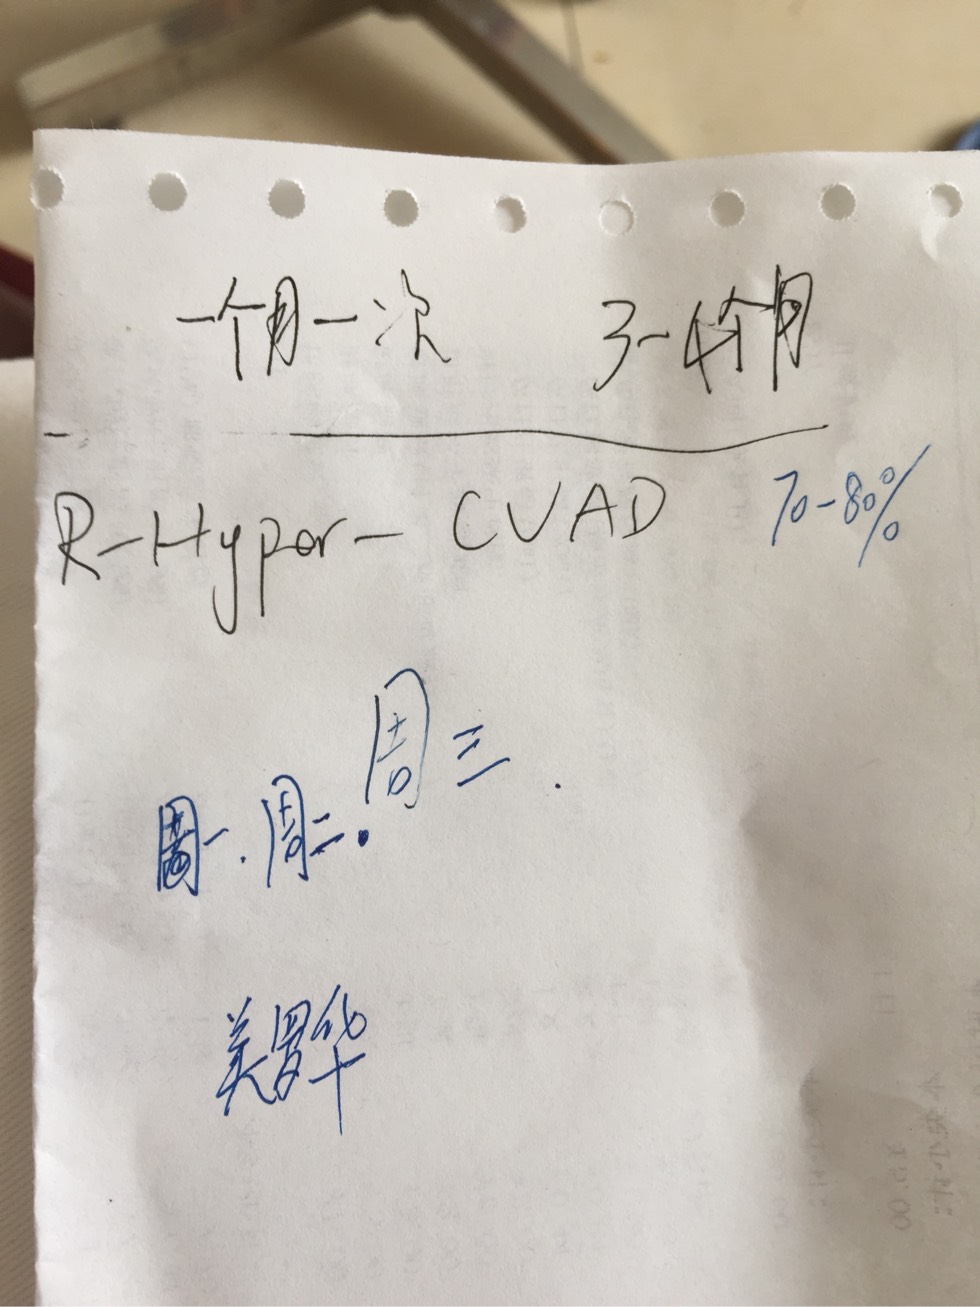 一个月一次 3-4个月
R-Hyper-CVAD 70-80%
周三.
周一.周二.
美罗华